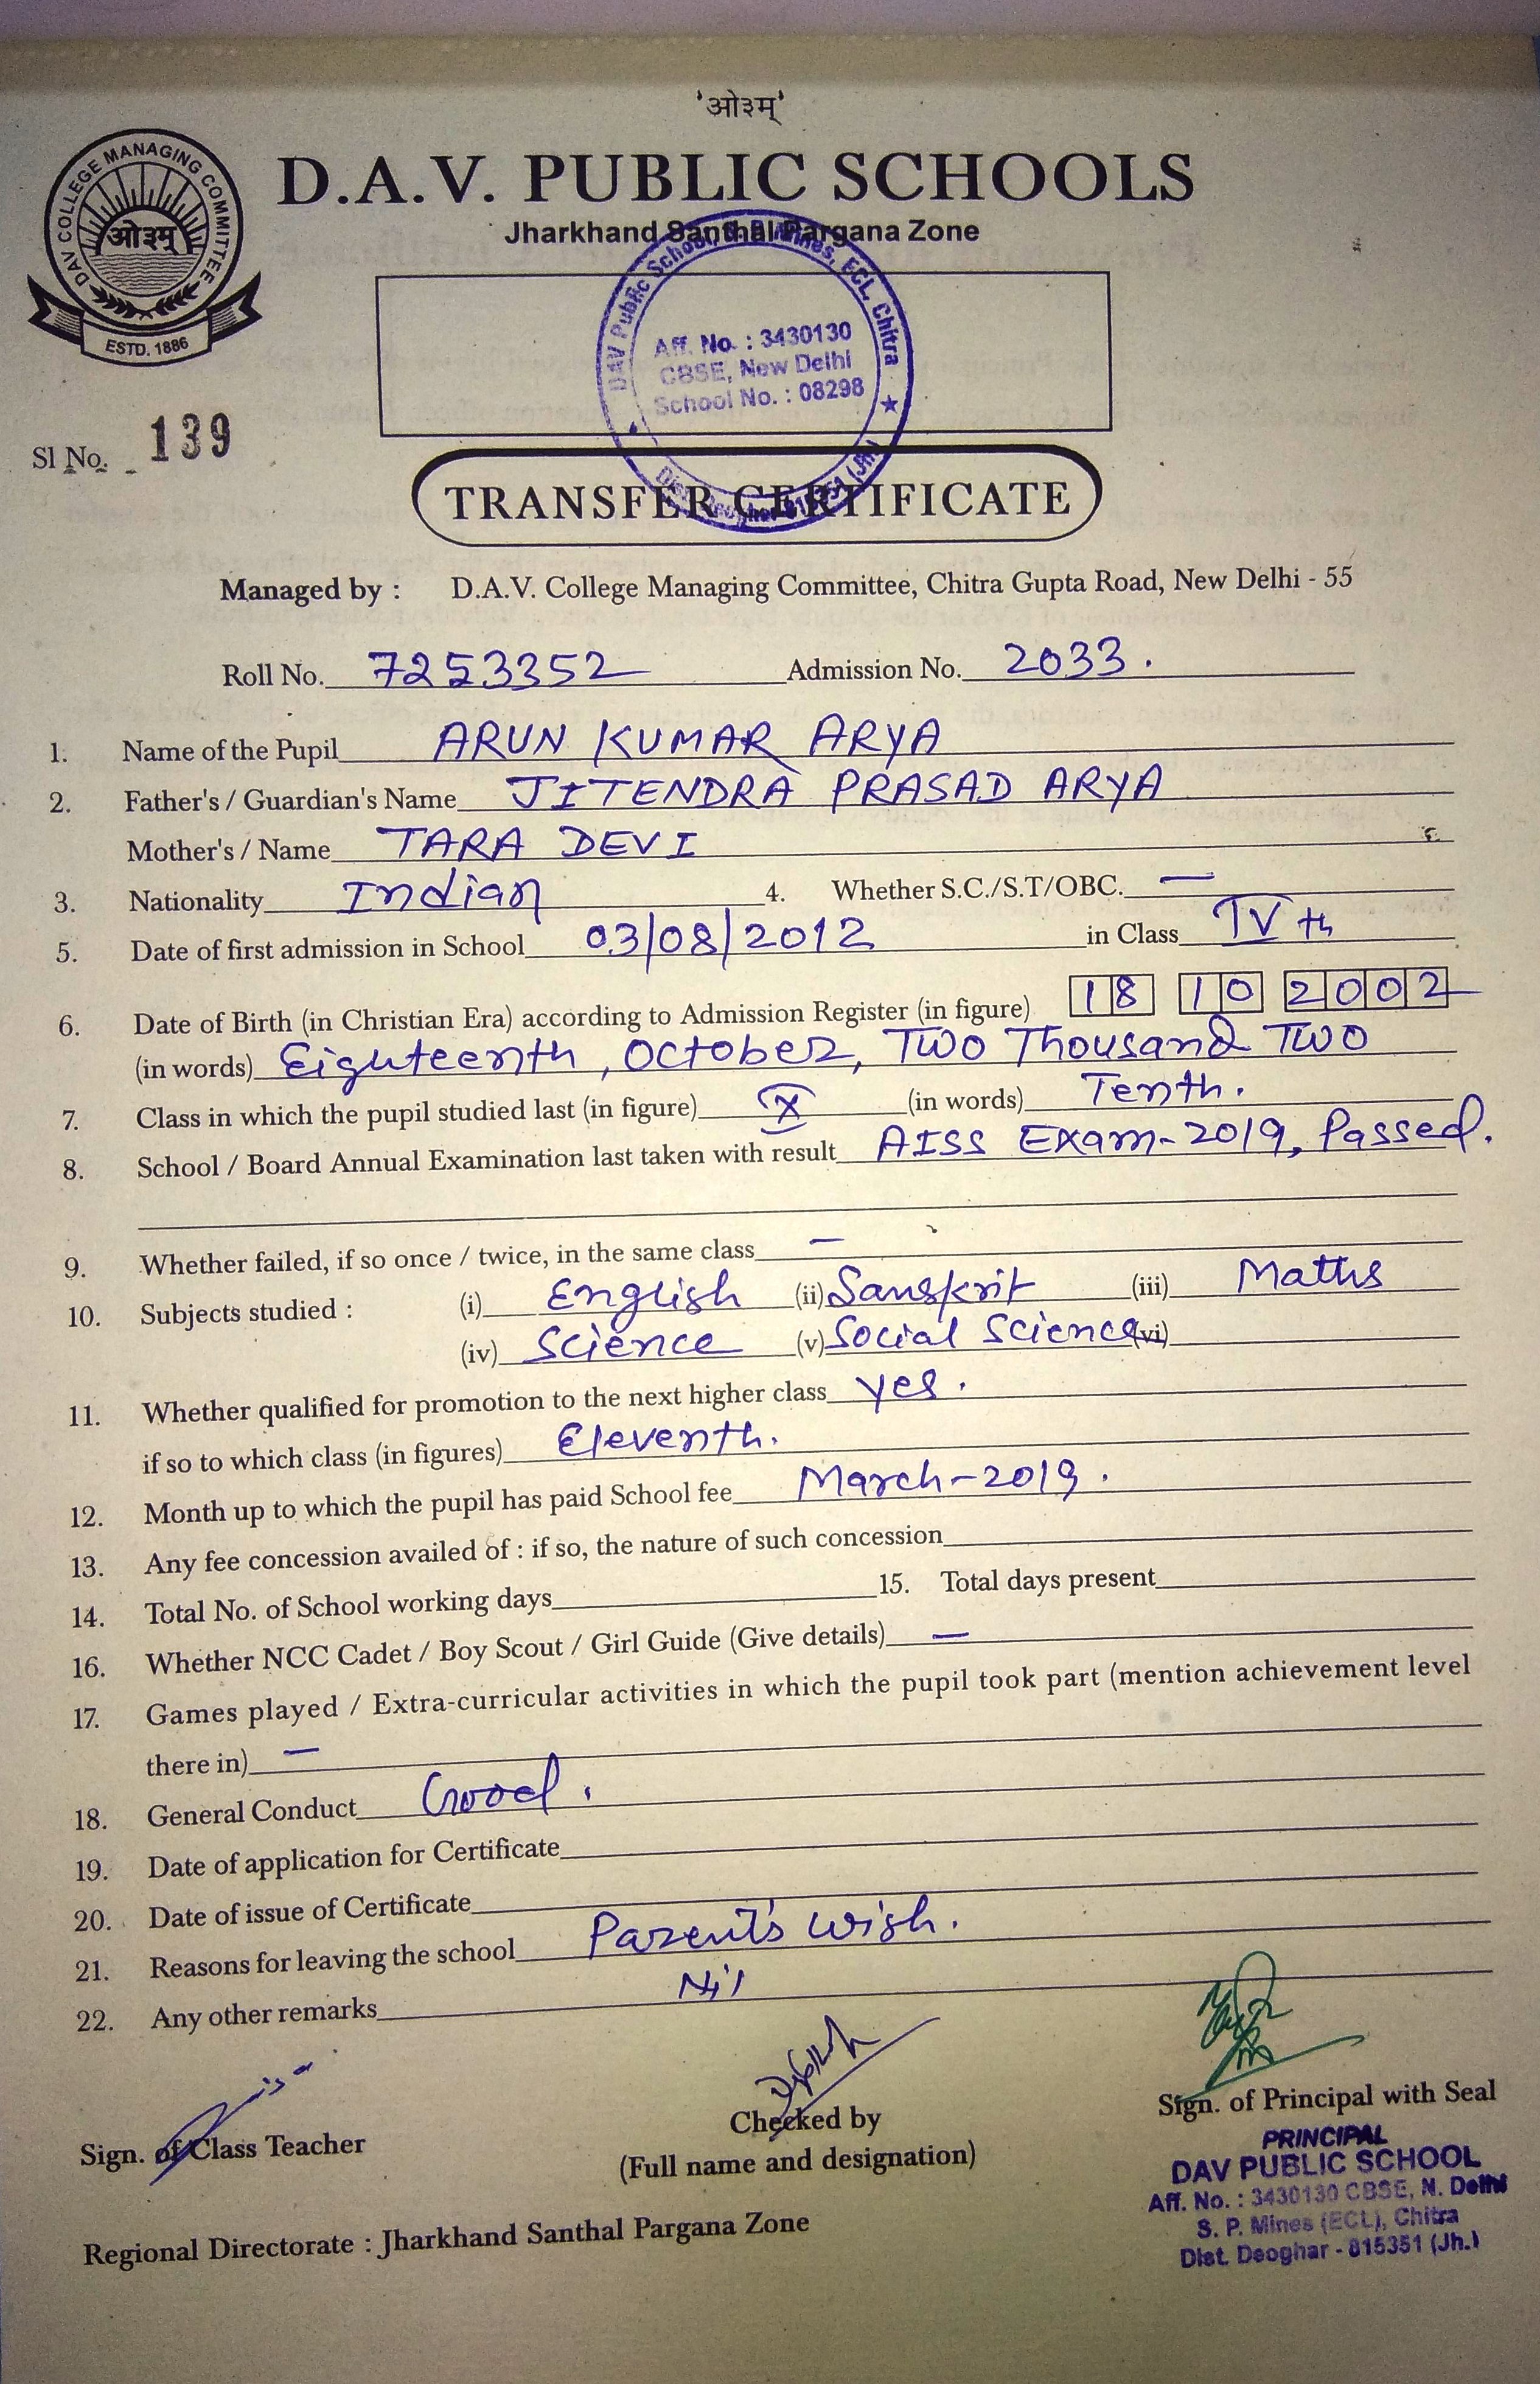 'ओ३म्'
DAV COLLEGE MANAGING COMMITTEE
ओ३म्
ESTD. 1886
D.A.V. PUBLIC SCHOOLS
Jharkhand Santhal Pargana Zone
DAV Public School, S. P. Mines, ECL, Chitra
Aff. No. : 3430130
CBSE, New Delhi
School No. : 08298
Dist. Deoghar 815351 (Jh.)
Sl No. 139
TRANSFER CERTIFICATE
Managed by : D.A.V. College Managing Committee, Chitra Gupta Road, New Delhi - 55
Roll No. 7253352 Admission No. 2033.
1. Name of the Pupil ARUN KUMAR ARYA
2. Father's / Guardian's Name JITENDRA PRASAD ARYA
Mother's / Name TARA DEVI
3. Nationality Indian 4. Whether S.C./S.T/OBC. —
5. Date of first admission in School 03/08/2012 in Class IVth
6. Date of Birth (in Christian Era) according to Admission Register (in figure) 18 10 2002
(in words) Eighuteenth, October, Two Thousand Two
7. Class in which the pupil studied last (in figure) X (in words) Tenth.
8. School / Board Annual Examination last taken with result AISS Exam-2019, Passed.
9. Whether failed, if so once / twice, in the same class —
10. Subjects studied : (i) English (ii) Sanskrit (iii) Maths
(iv) Science (v) Social Science (vi)
11. Whether qualified for promotion to the next higher class yes.
if so to which class (in figures) Eleventh.
12. Month up to which the pupil has paid School fee March-2019.
13. Any fee concession availed of : if so, the nature of such concession
14. Total No. of School working days 15. Total days present
16. Whether NCC Cadet / Boy Scout / Girl Guide (Give details) —
17. Games played / Extra-curricular activities in which the pupil took part (mention achievement level
there in) —
18. General Conduct Good.
19. Date of application for Certificate
20. Date of issue of Certificate
21. Reasons for leaving the school Parent's wish.
22. Any other remarks Nil
Sign. of Class Teacher
Checked by
(Full name and designation)
Sign. of Principal with Seal
PRINCIPAL
DAV PUBLIC SCHOOL
Aff. No. : 3430130 CBSE, N. Delhi
S. P. Mines (ECL), Chitra
Dist. Deoghar - 815351 (Jh.)
Regional Directorate : Jharkhand Santhal Pargana Zone